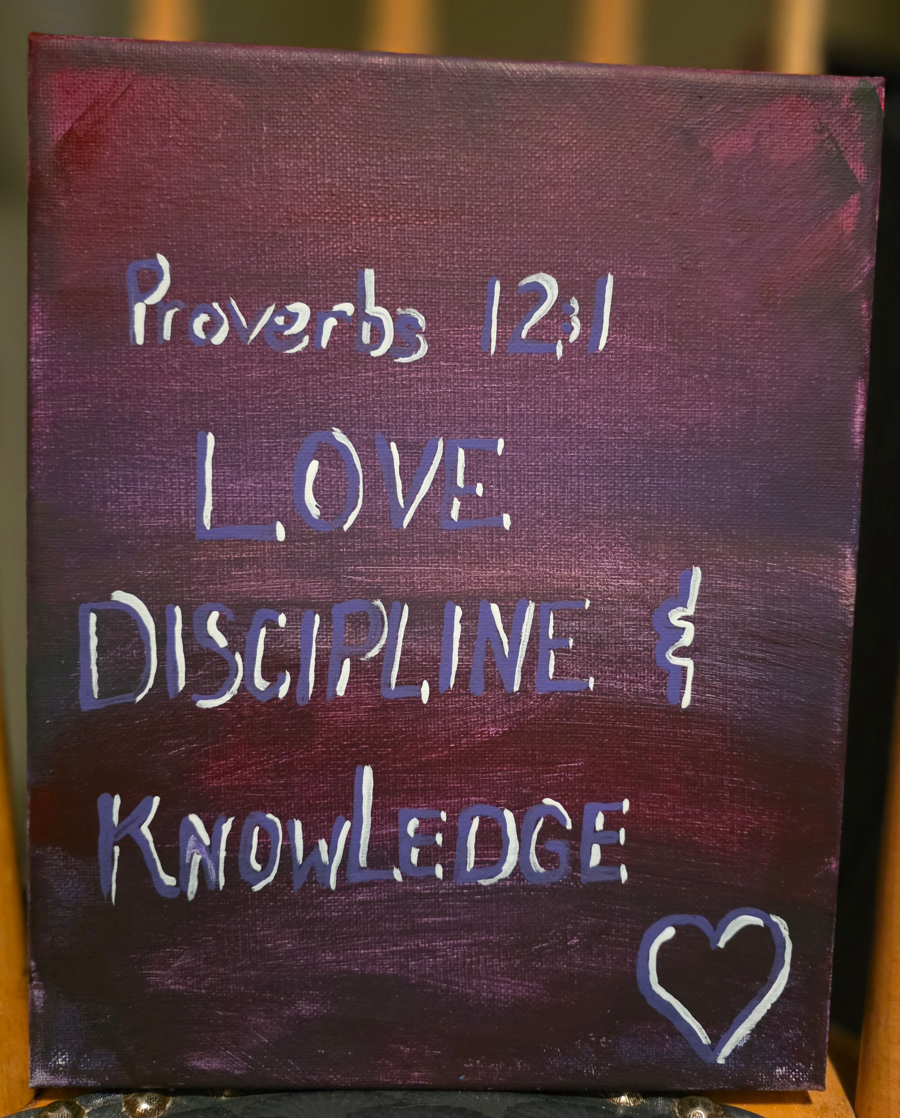 Proverbs 12:1
LOVE
DISCIPLINE &
KNOWLEDGE